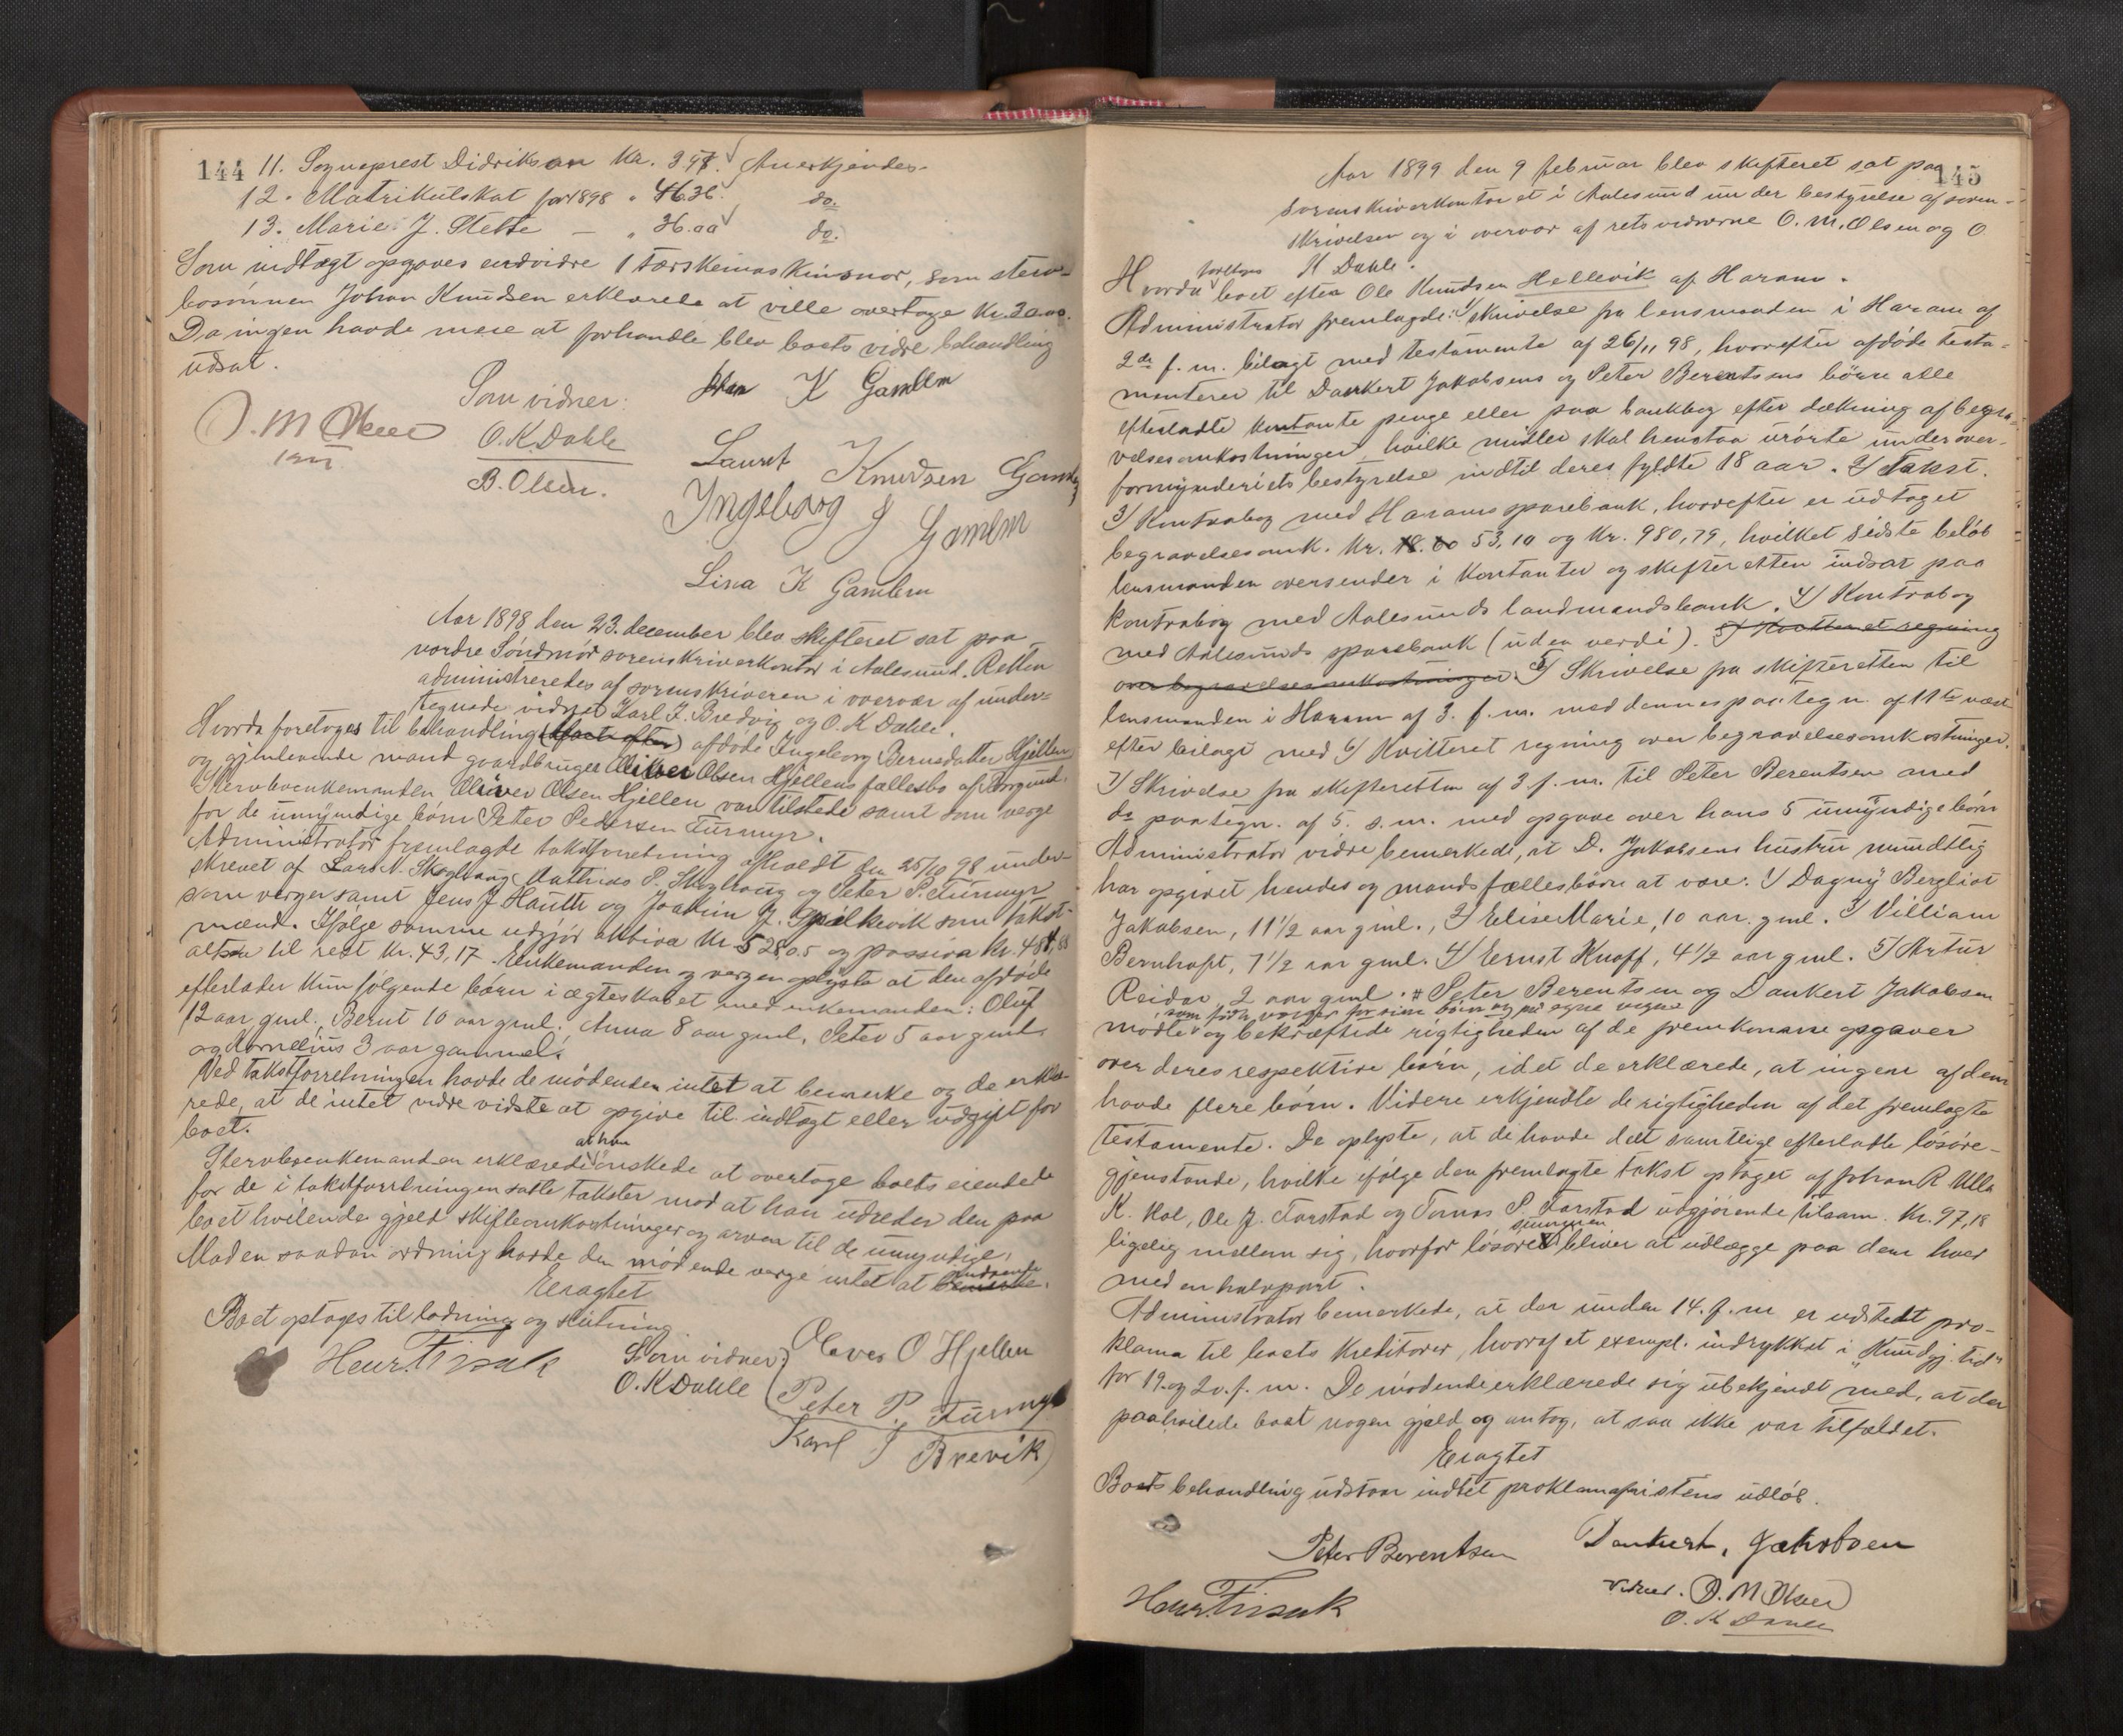 144
11. Sogneprest Didriksan Kr. 347. Anerkjendes.
12. Matrikulskat for 1898 " 46.36. do.
13. Marie J. Stette — " 36.00 do.
Som indtægt opgaves endvidre 1 tærskemaskinsnor, som sterv-
bosønnen Johan Knudsen erklærede at ville overtage Kr. 20.00.
Da ingen havde mere at forhandle blev boets vidre behandling
udsat.
Som vidner:
O. M. Olsen
O. K. Dahle
B. Olsen.
K Gamlem
Laurits Knudsen
Ingeborg J Gamlem
Lina K Gamlem
Aar 1898 den 23. december blev skifteret sat paa
nordre Søndmør sorenskriverkontor i Aalesund. Retten
administreredes af sorenskriveren i overvær af under-
tegnede vidner Karl J. Bredvig og O. K Dahle.
Hvorda foretoges til behandling afdøde Ingeborg Berntsdatter Hjellen
og gjenlevende mand gaardbruger Oliver Olsen Hjellens fællesbo af Borgund.
Stervboenkemanden Oliver Olsen Hjellen var tilstede samt som verge
for de umyndige børn Peter Pedersen Turmyr.
Administrator fremlagde takstforretning afholdt den 25/10 98 under-
skrevet af Lars N. Skoglvaug, Mathias P. Skoglvaug og Peter P. Turmyr
som verger samt Jens J Hauth og Joakim J. Spilkevik som takst-
mænd. Ifølge samme udgjør aktiva Kr. 528,05 og passiva Kr. 484,88
altsaa til rest Kr. 43,17. Enkemanden og vergen oplyste at den afdøde
efterlader kun følgende børn i ægteskabet med enkemanden: Oluf
12 aar gml., Bernt 10 aar gml. Anna 8 aar gml, Peter 5 aar gml.
og Kornelius 3 aar gammel.
Ved takstforretningen havde de mødende intet at bemerke og de erklæ-
rede, at de intet vidre vidste at opgive til indtægt eller udgift for
boet.
Stervboenkemanden erklærede at han ønskede at overtage boets eiendele
for de i takstforretningen satte takster mod at han udreder den paa
boet hvilende gjæld skifteomkostninger og arven til de umyndige.
Mod en saadan ordning havde den mødende verge intet at indvende.
Eragtet
Boet optages til lodning og slutning
Henr. Finsak
Som vidner:
O. K Dahle
Oliver O Hjellen
Peter P. Turmyr
Karl J Brevik
145
Aar 1899 den 9 februar blev skifteret sat paa
sorenskriverkontoret i Aalesund under bestyrelse af soren-
skriveren og i overvær af retsvidnerne O. M. Olsen og O.
K Dahle.
Hvorda foretoges boet efter Ole Knudsen Hellevik af Haram.
Administrator fremlagde: 1/ skrivelse fra lensmanden i Haram af
2de f. m. bilagt med testamente af 26/11 98, hvorefter afdøde testa-
menterer til Dankert Jakobsens og Peter Berentsens børn alle
efterladte kontante penge eller paa bankbog efter dækning af begra-
velsesomkostninger, hvilke midler skal henstaa urørte under over-
formynderiets bestyrelse indtil deres fyldte 18 aar. 2/ Takst.
3/ Kontrabog med Harams sparebank, hvorefter er udtaget
begravelsesomk. Kr. 18.60 53,10 og Kr. 980,79, hvilket sidste beløb
lensmanden oversender i kontanter og skifteretten indsat paa
kontrabog med Aalesunds landmandsbank. 4/ Kontrabog
med Aalesunds sparebank (uden verdi). 5/ Kvitteret regning
over begravelsesomkostninger. 5/ Skrivelse fra skifteretten til
lensmanden i Haram af 3. f. m. med dennes paategn. af 11te næst-
efter bilagt med 6/ Kvitteret regning over begravelsesomkostninger.
7/ Skrivelse fra skifteretten af 3. f. m. til Peter Berentsen med
ds paategn. af 5. s. m. med opgave over hans 5 umyndige børn
Administrator vidre bemerkede, at D. Jakobsens hustru mundtlig
har opgivet hendes og mands fællesbørn at være: 1/ Dagny Bergliot
Jakobsen, 11 1/2 aar gml., 2/ Elise Marie, 10 aar gml. 3/ Villiam
Bernhoft, 7 1/2 aar gml. 4/ Ernst Knoff, 4 1/2 aar gml. 5/ Artur
Reidar, 2 aar gml. # Peter Berentsen og Dankert Jakobsen
som født verger for sine børn og paa egne vegne
mødte og bekræftede rigtigheden af de fremkomne opgaver
over deres respektive børn, idet de erklærede, at ingen af dem
havde flere børn. Videre erkjendte de rigtigheden af det fremlagte
testamente. De oplyste, at de havde delt samtlige efterladte løsøre-
gjenstande, hvilke ifølge den fremlagte takst optaget af Johan R Ulla
K. Hol, Ole J. Farstad og Tomas P. Farstad udgjørende tilsam. Kr. 97,18
ligelig mellem sig, hvorfor løsøresummen bliver at udlægge paa dem hver
med en halvpart.
Administrator bemerkede, at der under 14. f. m. er udstedt pro-
klama til boets kreditorer, hvoraf et exempl. indrykket i "Kundgj. tid"
for 19. og 20. f. m. De mødende erklærede sig ubekjendt med, at der
paahvilede boet nogen gjæld og antog, at saa ikke var tilfældet.
Eragtet
Boets behandling udstaar indtil proklamafristens udløb.
Peter Berentsen Dankert, Jakobsen
Henr. Finsak
Vidner. O. M Olsen
O. K Dahle